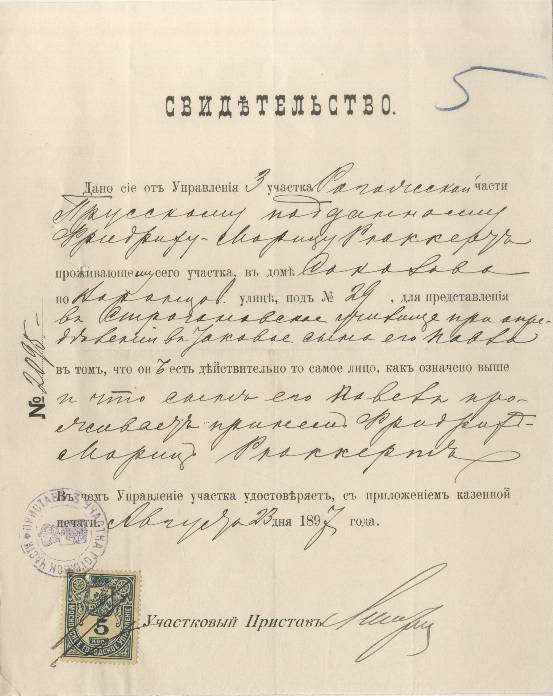 5
СВИДѢТЕЛЬСТВО.
Дано сіе отъ Управленія 3 участка Рогожской части
Прусскому подданному
Фридриху-Морицу Рюккертъ
проживающему сего участка, въ домѣ Соколова
по Воронцов. улицѣ, подъ № 29, для представленія
въ Строгановское училище при опре-
дѣленіи въ таковое сына его Павла
въ томъ, что онъ есть дѣйствительно то самое лицо, какъ означено выше
и что сынъ его Павелъ про-
живаетъ при немъ Фридрихъ-
Морицъ Рюккертъ
Въ чемъ Управленіе участка удостовѣряетъ, съ приложеніемъ казенной
печати. Августа 23 дня 1897 года.
Участковый Приставъ
№ 2095
5
КОП.